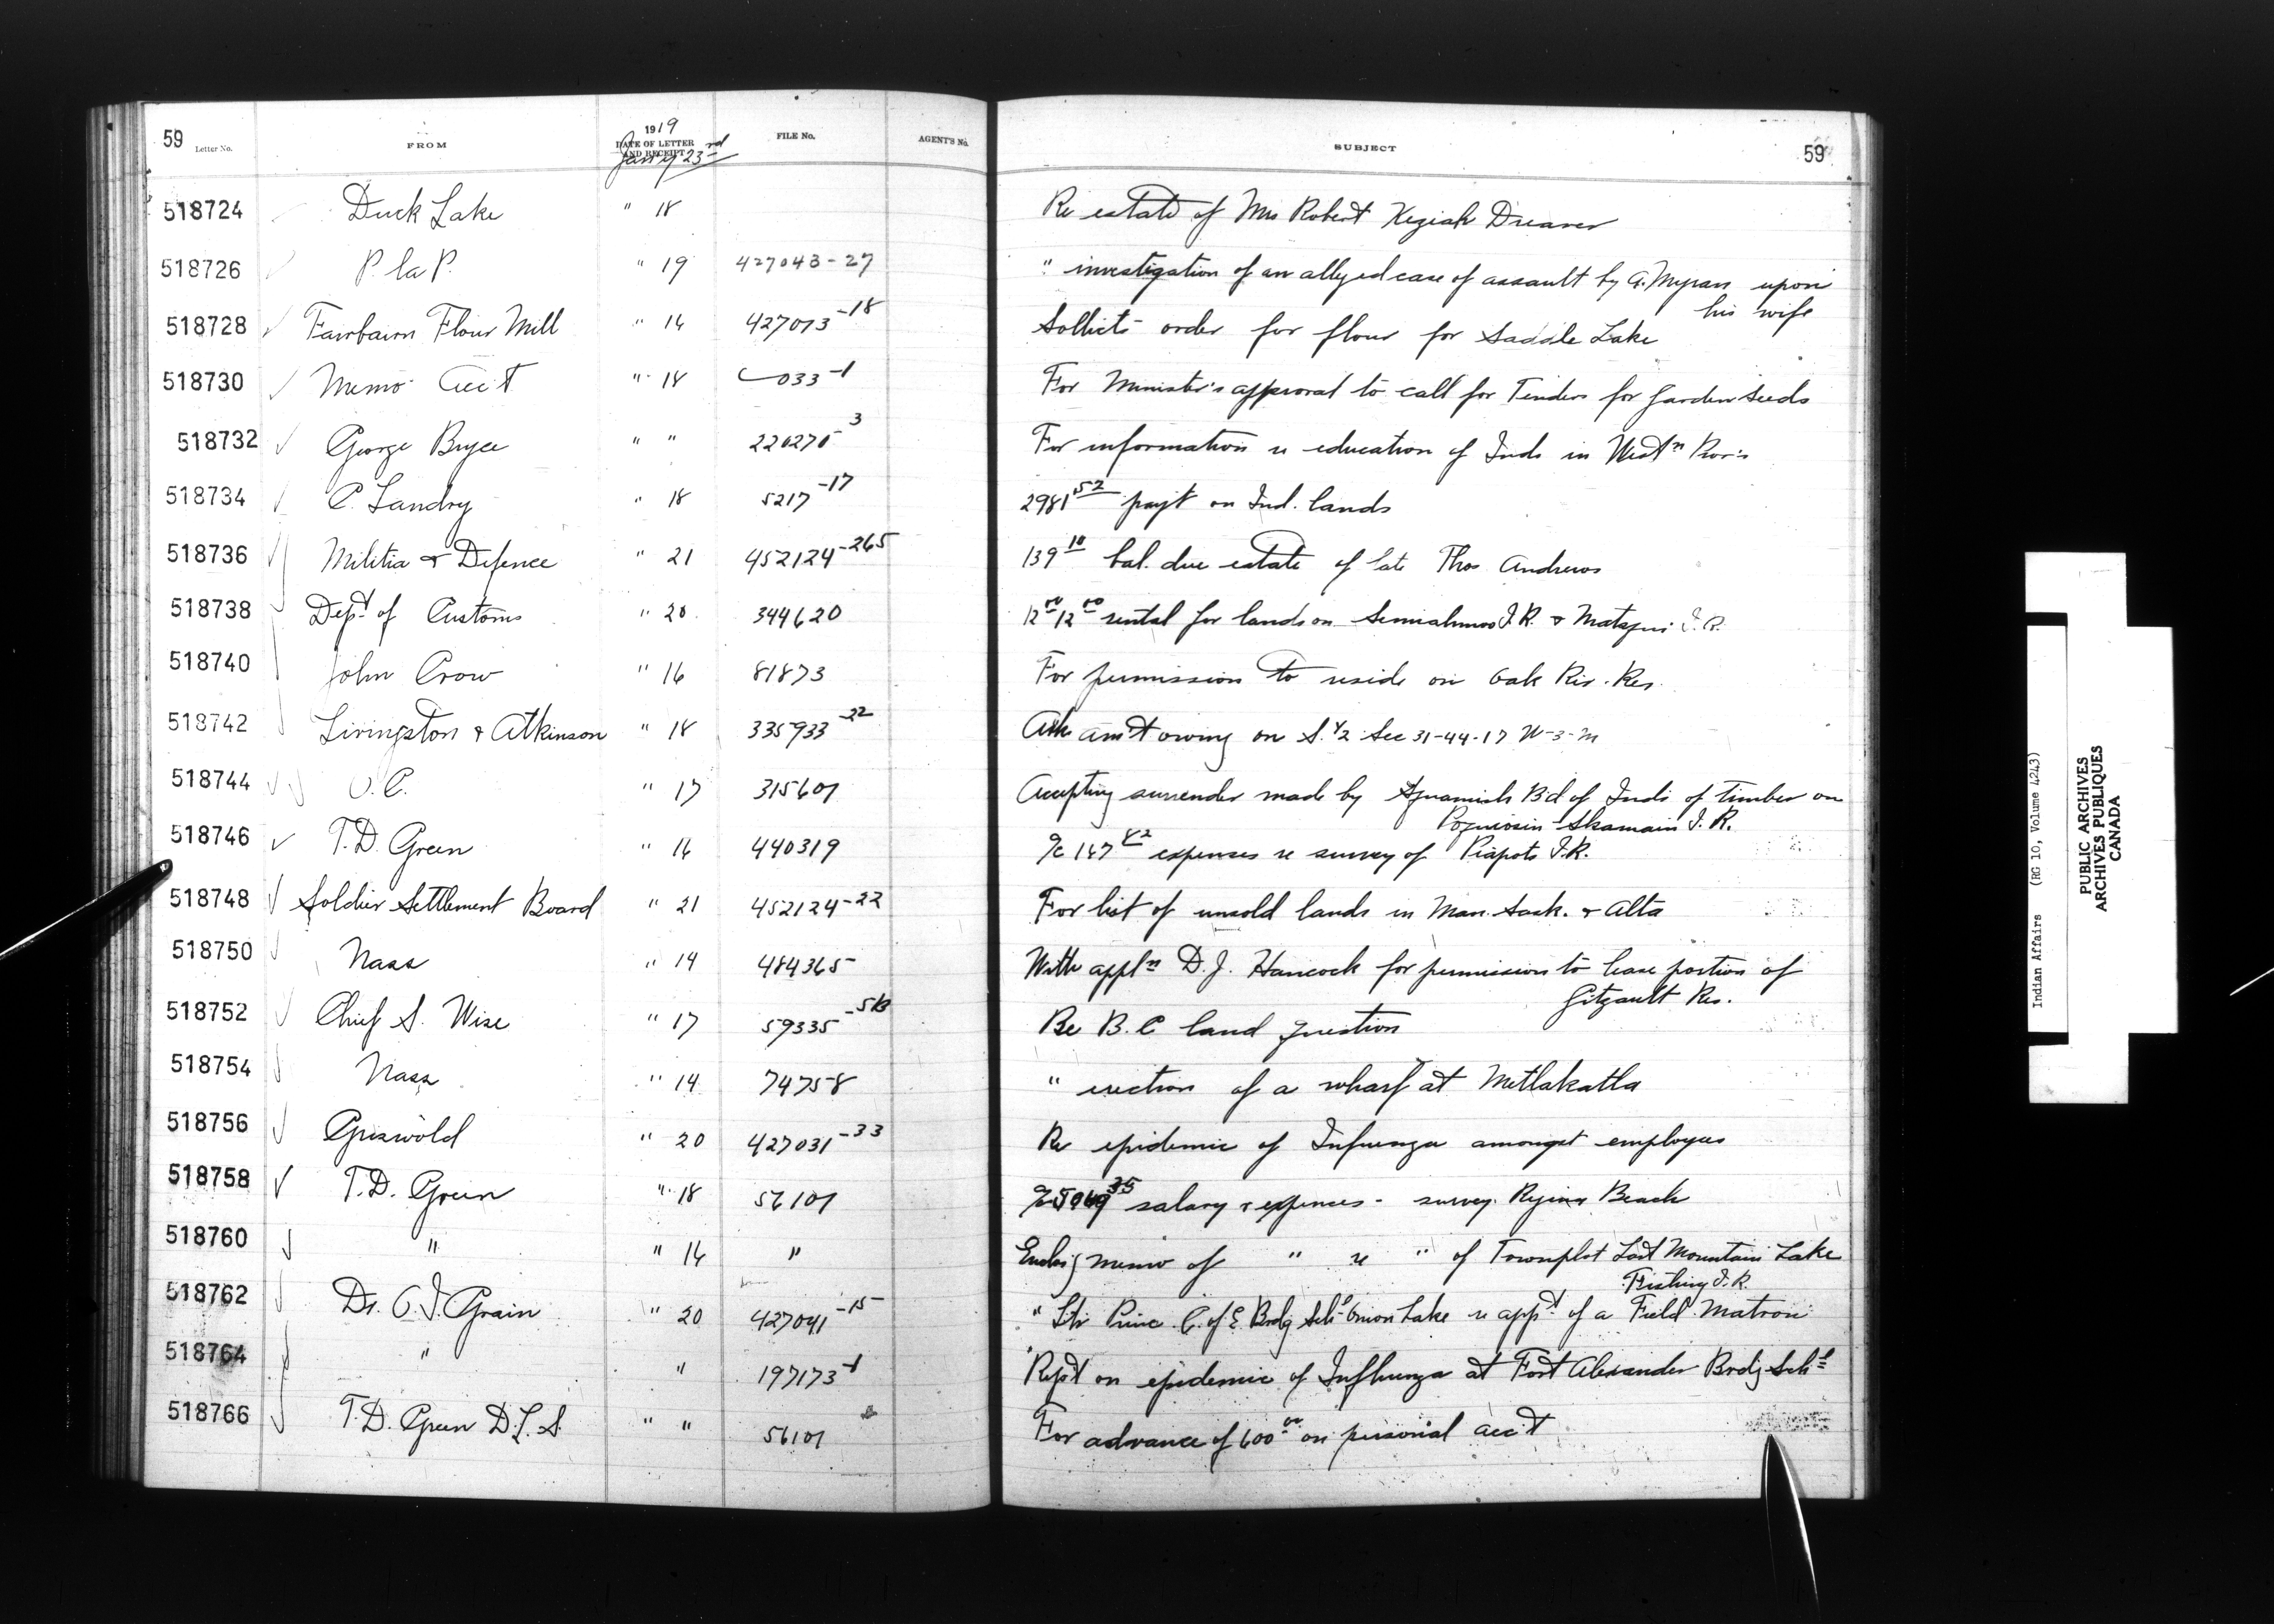 59 Letter No. FROM 1919 DATE OF LETTER AND RECEIPT Jan'y 23rd FILE No. AGENT'S No. SUBJECT 59
518724 Duck Lake " 18 Re estate of Mrs Robert Keziah Dreaver
518726 P. la P. " 19 427043-27 " investigation of an alleged case of assault by A. Myran upon
his wife
518728 Fairbairn Flour Mill " 16 427073-18 Sollicits order for flour for Saddle Lake
518730 Memo Acc't " 18 033-1 For Minister's approval to call for Tenders for garden seeds
518732 George Bryce " " 3 For information re education of Inds in West'n Prov's
518734 C. Landry " 18 5217-17 2981 52 pay't on Ind. lands
518736 Militia & Defence " 21 452124-265 139 10 bal. due estate of late Thos Andrews
518738 Dept of Customs " 20 344620 12 00 12 00 rental for lands on Semiahmoo I.R. & Matsqui I.R.
518740 John Crow " 16 81873 For permission to reside on Oak Riv. Res.
518742 Livingston & Atkinson " 18 335933-22 Ask am't owing on S. 1/2 Sec 31-44-17 W-3-M
518744 O.C. " 17 315607 Accepting surrender made by Squamish Bd of Inds of timber on
Skamain I.R.
518746 T.D. Green " 16 440319 a/c 147 82 expenses re survey of Piapots I.R.
518748 Soldier Settlement Board " 21 452124-22 For list of unsold lands in Man. Sask. & Alta
518750 Nass " 14 484365 With appl'n D.J. Hancock for permission to lease portion of
Gitzault Res.
518752 Chief S. Wise " 17 59335-5B Re B.C land question
518754 Nass " 14 74758 " erection of a wharf at Metlakatla
518756 Griswold " 20 427031-33 Re epidemic of Infuenza amongst employees
518758 T.D. Green " 18 56107 a/c 35 salary & expenses - survey Regina Beach
518760 " " 16 " Enclos'g memo of " re " of Townplot Last Mountain Lake
Fishing I.R.
518762 Dr. O.I. Grain " 20 427041-15 " Ltr Princ. C. of E. Brdg Sch'l Onion Lake re app't of a Field Matron
518764 " " 197173-1 Rep't on epidemic of Influenza at Fort Alexander Brdg Sch'l
518766 T.D. Green D.L.S. " " 56107 For advance of 600 00 on personal acc't
Indian Affairs (RG 10, Volume 4243)
PUBLIC ARCHIVES
ARCHIVES PUBLIQUES
CANADA